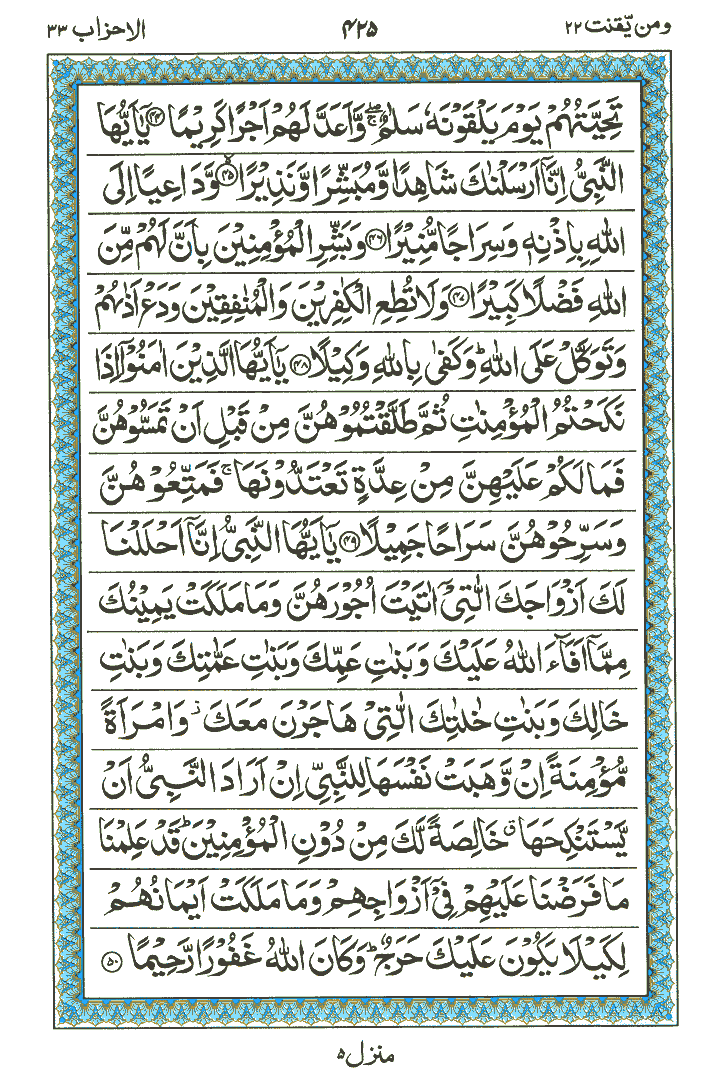 ومن يّقنت ٢٢
٤٢٥
الاحزاب ٣٣
تَحِيَّتُهُمْ يَوْمَ يَلْقَوْنَهٗ سَلٰمٌ ۖۚ وَّاَعَدَّ لَهُمْ اَجْرًا كَرِيْمًا ﴿۴۴﴾ يٰۤاَيُّهَا
النَّبِيُّ اِنَّاۤ اَرْسَلْنٰكَ شَاهِدًا وَّمُبَشِّرًا وَّنَذِيْرًا ﴿۴۵﴾ وَّدَاعِيًا اِلَى
اللّٰهِ بِاِذْنِهٖ وَسِرَاجًا مُّنِيْرًا ﴿۴۶﴾ وَبَشِّرِ الْمُؤْمِنِيْنَ بِاَنَّ لَهُمْ مِّنَ
اللّٰهِ فَضْلًا كَبِيْرًا ﴿۴۷﴾ وَلَا تُطِعِ الْكٰفِرِيْنَ وَالْمُنٰفِقِيْنَ وَدَعْ اَذٰىهُمْ
وَتَوَكَّلْ عَلَى اللّٰهِ ؕ وَكَفٰى بِاللّٰهِ وَكِيْلًا ﴿۴۸﴾ يٰۤاَيُّهَا الَّذِيْنَ اٰمَنُوْۤا اِذَا
نَكَحْتُمُ الْمُؤْمِنٰتِ ثُمَّ طَلَّقْتُمُوْهُنَّ مِنْ قَبْلِ اَنْ تَمَسُّوْهُنَّ
فَمَا لَكُمْ عَلَيْهِنَّ مِنْ عِدَّةٍ تَعْتَدُّوْنَهَا ۚ فَمَتِّعُوْهُنَّ
وَسَرِّحُوْهُنَّ سَرَاحًا جَمِيْلًا ﴿۴۹﴾ يٰۤاَيُّهَا النَّبِيُّ اِنَّاۤ اَحْلَلْنَا
لَكَ اَزْوَاجَكَ الّٰتِيْۤ اٰتَيْتَ اُجُوْرَهُنَّ وَمَا مَلَكَتْ يَمِيْنُكَ
مِمَّاۤ اَفَآءَ اللّٰهُ عَلَيْكَ وَبَنٰتِ عَمِّكَ وَبَنٰتِ عَمّٰتِكَ وَبَنٰتِ
خَالِكَ وَبَنٰتِ خٰلٰتِكَ الّٰتِيْ هَاجَرْنَ مَعَكَ ؗ وَامْرَاَةً
مُّؤْمِنَةً اِنْ وَّهَبَتْ نَفْسَهَا لِلنَّبِيِّ اِنْ اَرَادَ النَّبِيُّ اَنْ
يَّسْتَنْكِحَهَا ۗ خَالِصَةً لَّكَ مِنْ دُوْنِ الْمُؤْمِنِيْنَ ؕ قَدْ عَلِمْنَا
مَا فَرَضْنَا عَلَيْهِمْ فِيْۤ اَزْوَاجِهِمْ وَمَا مَلَكَتْ اَيْمَانُهُمْ
لِكَيْلَا يَكُوْنَ عَلَيْكَ حَرَجٌ ؕ وَكَانَ اللّٰهُ غَفُوْرًا رَّحِيْمًا ﴿۵۰﴾
منزل ۵